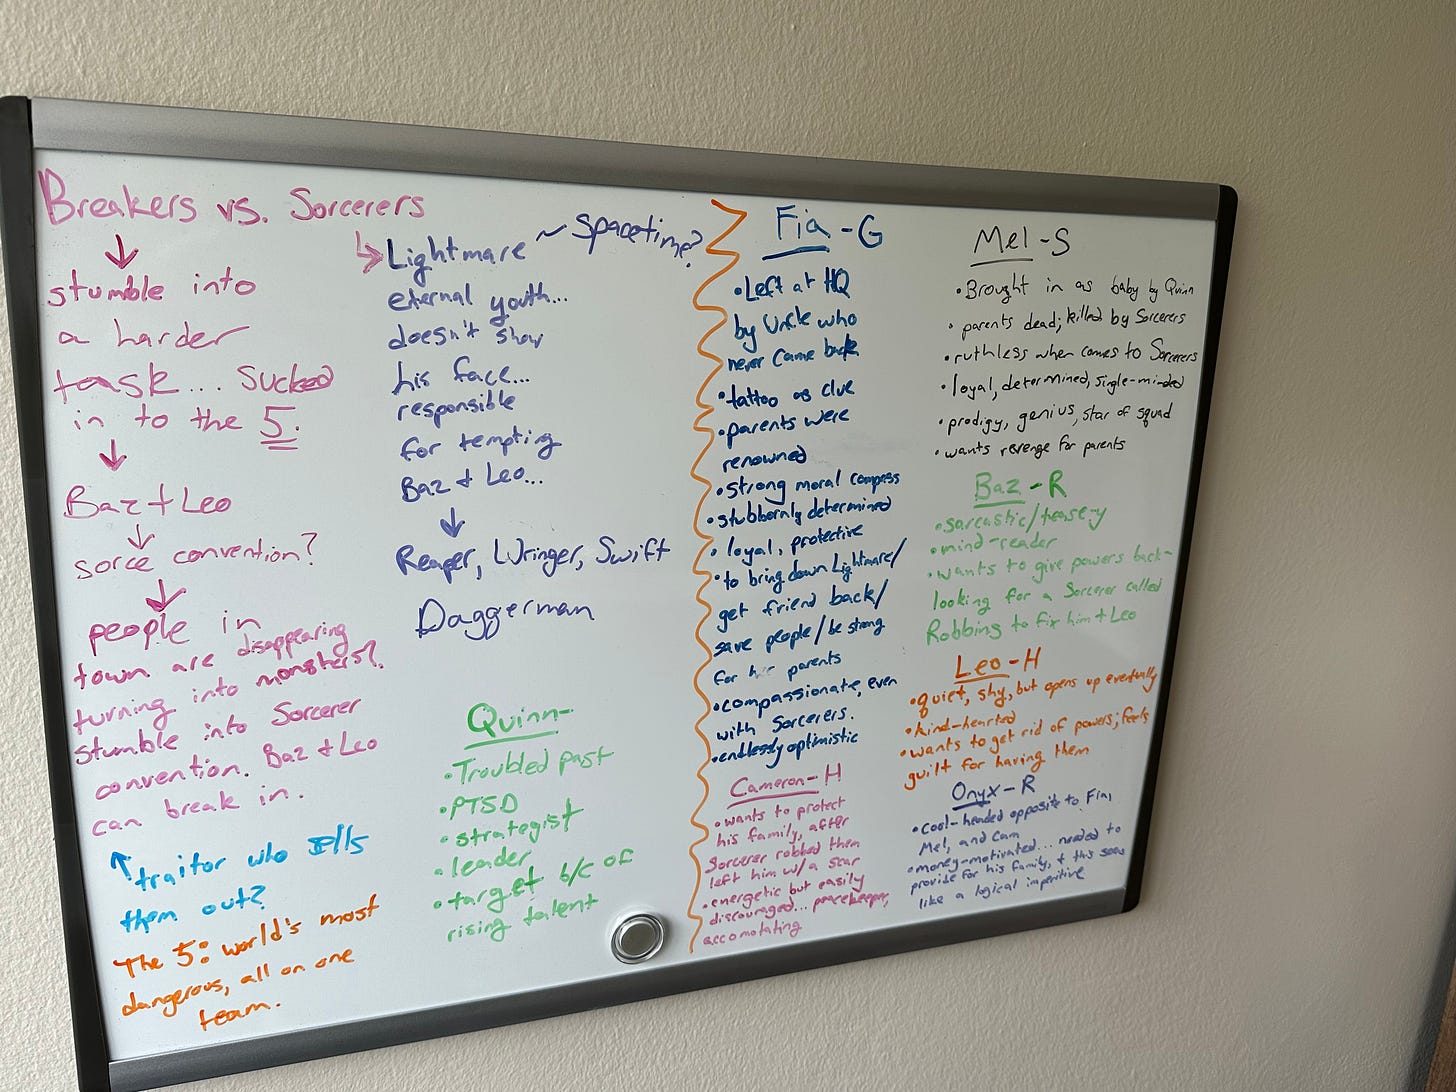 Breakers vs. Sorcerers
↓
stumble into
a harder
task... sucked
in to the 5.
↓
Baz + Leo
↓
sorce convention?
↓
people in
town are disappearing
turning into monsters?
stumble into Sorcerer
convention. Baz + Leo
can break in.
↑ traitor who sells
them out?
The 5: world's most
dangerous, all on one
team.
↳ Lightmare ~ spacetime?
eternal youth...
doesn't show
his face...
responsible
for tempting
Baz + Leo...
↓
Reaper, Wringer, Swift
Daggerman
Quinn-
•Troubled past
•PTSD
•strategist
•leader
•target b/c of
rising talent
Fia - G
•Left at HQ
by Uncle who
never came back
•tattoo as clue
•parents were
renowned
•strong moral compass
•stubbornly determined
•loyal, protective
•to bring down Lightmare/
get friend back/
save people/be strong
for her parents
•compassionate, even
with Sorcerers.
•endlessly optimistic
Cameron - H
•wants to protect
his family, after
Sorcerer robbed them
left him w/a scar
•energetic but easily
discouraged... peacekeeper,
accomotating
Mel - S
•Brought in as baby by Quinn
•parents dead; killed by Sorcerers
•ruthless when comes to Sorcerers
•loyal, determined, single-minded
•prodigy, genius, star of squad
•wants revenge for parents
Baz - R
•sarcastic/tease-y
•mind-reader
•wants to give powers back-
looking for a Sorcerer called
Robbing to fix him + Leo
Leo - H
•quiet, shy, but opens up eventually
•kind-hearted
•wants to get rid of powers; feels
guilt for having them
Onyx - R
•cool-headed opposite to Fia,
Mel, and Cam
•money-motivated... needed to
provide for his family, + this seems
like a logical imperitive